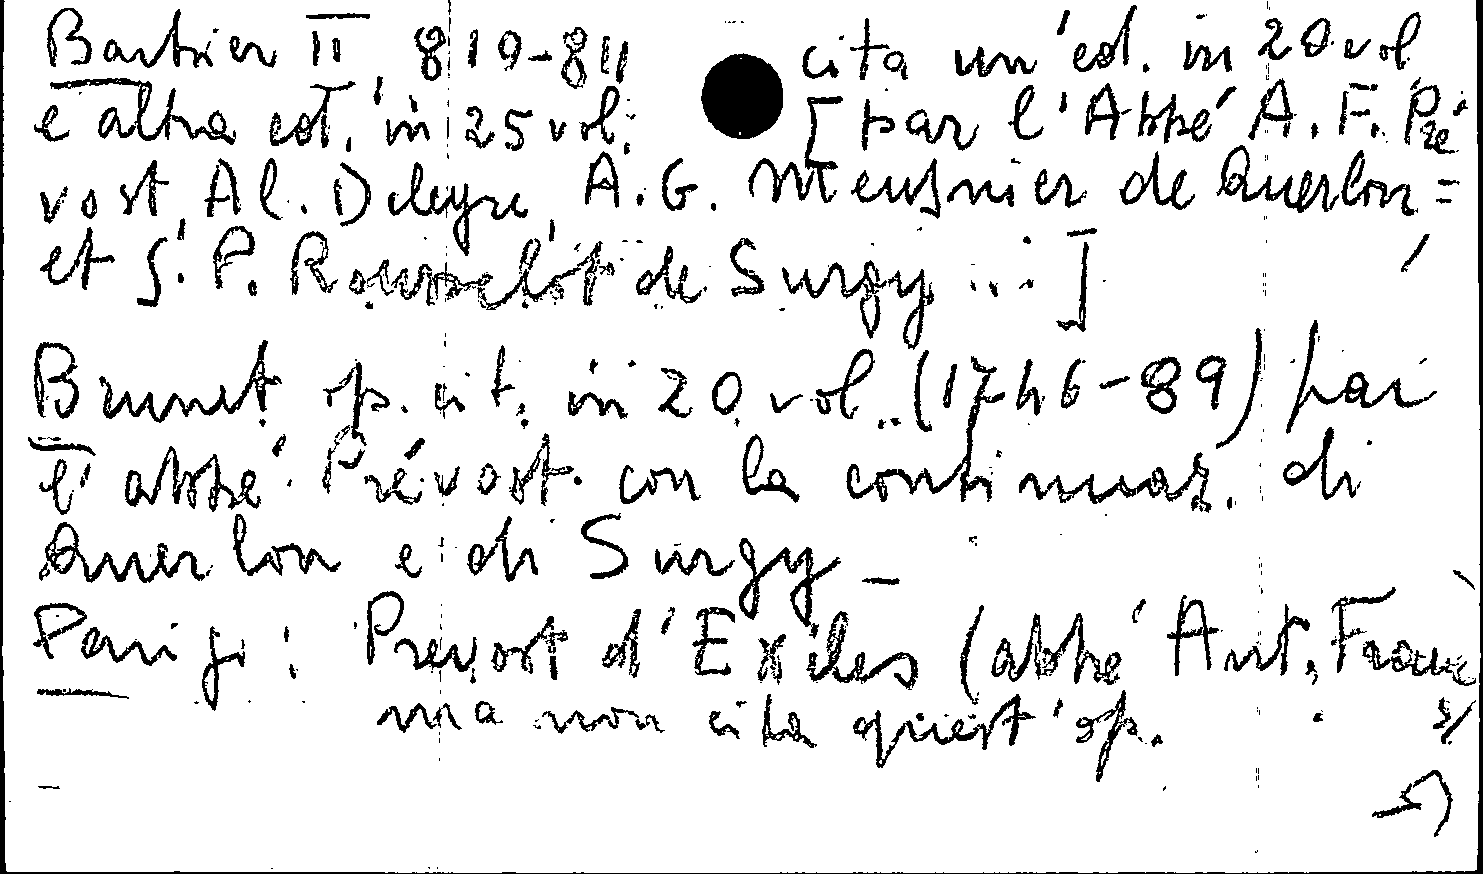 Barbier II, 810-811 cita un'ed. in 20 vol.
e altra ed. in 25 vol. [par l'Abbé A. F. Pré
vost, Al. Deleyre, A. G. Meusnier de Querlon =
et J. P. Rousselot de Surgy ...]
Brunet op. cit. in 20 vol. (1746-89) par
l'abbé Prévost. con la continuaz. di
Querlon e di Surgy _
Parigi: Prevost d'Exiles (abbé Ant. Franç
ma non cita quest'op.